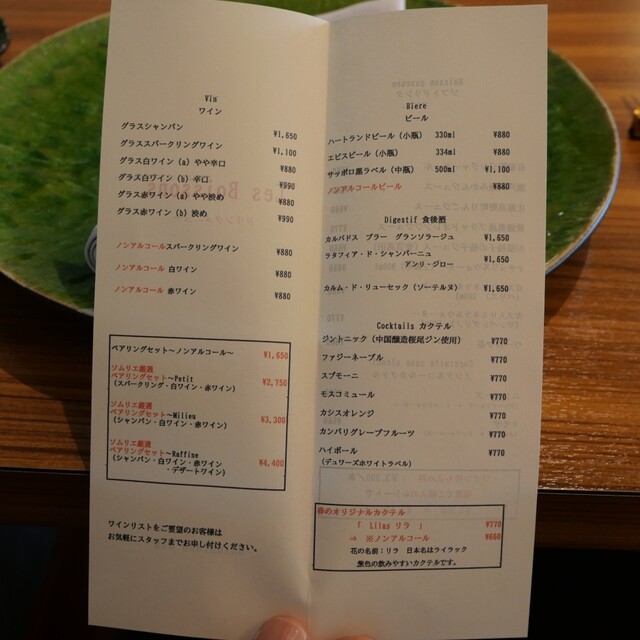 Vin
ワイン
グラスシャンパン ¥1,650
グラススパークリングワイン ¥1,100
グラス白ワイン (a) やや辛口 ¥880
グラス白ワイン (b) 辛口 ¥990
グラス赤ワイン (a) やや渋め ¥880
グラス赤ワイン (b) 渋め ¥990
ノンアルコールスパークリングワイン ¥880
ノンアルコール 白ワイン ¥880
ノンアルコール 赤ワイン ¥880
ペアリングセット～ノンアルコール～ ¥1,650
ソムリエ厳選
ペアリングセット～Petit ¥2,750
(スパークリング・白ワイン・赤ワイン)
ソムリエ厳選
ペアリングセット～Milieu ¥3,300
(シャンパン・白ワイン・赤ワイン)
ソムリエ厳選
ペアリングセット～Raffine ¥4,400
(シャンパン・白ワイン・赤ワイン
・デザートワイン)
ワインリストをご要望のお客様は
お気軽にスタッフまでお申し付けください。
Biere
ビール
ハートランドビール (小瓶) 330ml ¥880
エビスビール (小瓶) 334ml ¥880
サッポロ黒ラベル (中瓶) 500ml ¥1,100
ノンアルコールビール ¥880
Digestif 食後酒
カルバドス ブラー グランソラージュ ¥1,650
ラタフィア・ド・シャンパーニュ ¥1,650
アンリ・ジロー
カルム・ド・リューセック (ソーテルヌ) ¥1,650
Cocktails カクテル
ジントニック (中国醸造桜尾ジン使用) ¥770
ファジーネーブル ¥770
スプモーニ ¥770
モスコミュール ¥770
カシスオレンジ ¥770
カンパリグレープフルーツ ¥770
ハイボール ¥770
(デュワーズホワイトラベル)
春のオリジナルカクテル
「 Lilas リラ 」 ¥770
⇒ ※ノンアルコール ¥660
花の名前：リラ 日本名はライラック
紫色の飲みやすいカクテルです。